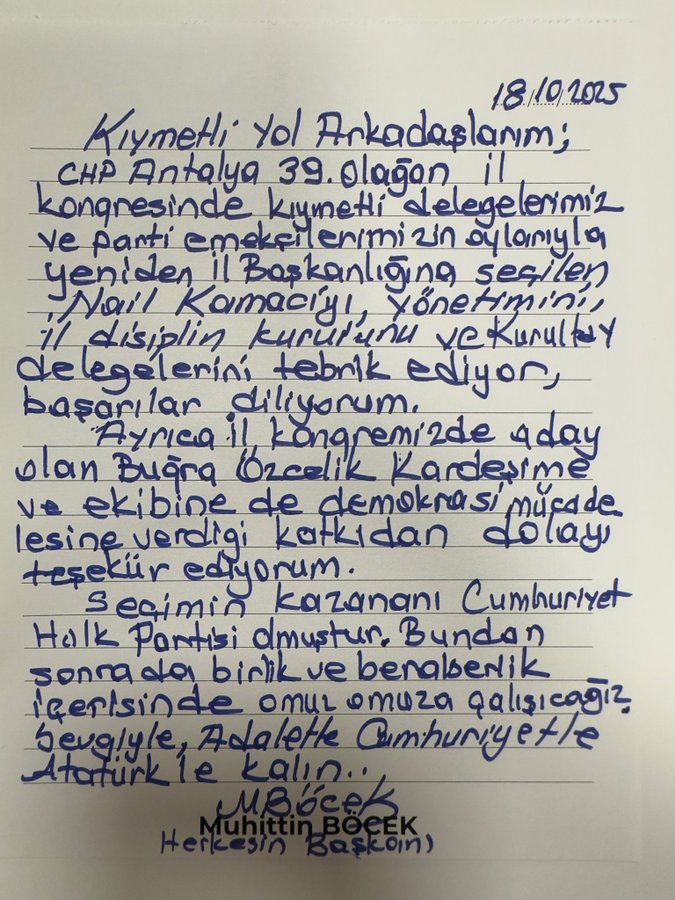 18/10/2025
Kıymetli Yol Arkadaşlarım;
CHP Antalya 39. Olağan il
kongresinde kıymetli delegelerimiz
ve parti emekçilerimizin oylarıyla
yeniden İl Başkanlığına seçilen
Nail Kamacı'yı, yönetimini,
il disiplin kurulunu ve Kurultay
delegelerini tebrik ediyor,
başarılar diliyorum.
Ayrıca İl kongremizde aday
olan Buğra Özçelik Kardeşime
ve ekibine de demokrasi mücade
lesine verdiği katkıdan dolayı
teşekür ediyorum.
Seçimin kazananı Cumhuriyet
Halk Partisi olmuştur. Bundan
sonrada birlik ve beraberlik
içerisinde omuz omuza çalışıcağız.
Sevgiyle, Adaletle Cumhuriyetle
Atatürk'le kalın..
MBÖCEK
Muhittin BÖCEK
Herkesin Başkanı